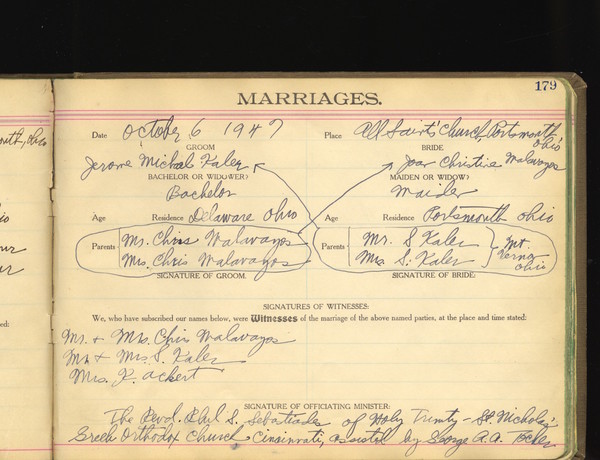 179
MARRIAGES.
Date October 6 1947 Place All Saints' Church, Portsmouth
Ohio
GROOM BRIDE
Jerome Michael Kaler Joan Christine Malavazos
BACHELOR OR WIDOWER) MAIDEN OR WIDOW)
Bachelor Maiden
Age Residence Delaware Ohio Age Residence Portsmouth Ohio
Parents Mr. Chris Malavazos Parents Mr. S Kaler Mt.
Mrs. Chris Malavazos Mrs. S. Kaler Verno
Ohio
SIGNATURE OF GROOM. SIGNATURE OF BRIDE:
SIGNATURES OF WITNESSES:
We, who have subscribed our names below, were Witnesses of the marriage of the above named parties, at the place and time stated:
Mr. & Mrs. Chris Malavazos
Mr. & Mrs. S. Kaler
Mrs. K. Ackert
SIGNATURE OF OFFICIATING MINISTER:
The Revd. S. of Holy Trinity - St. Nicholas
Greek Orthodox Church, Cincinnati, assisted by George A.A.